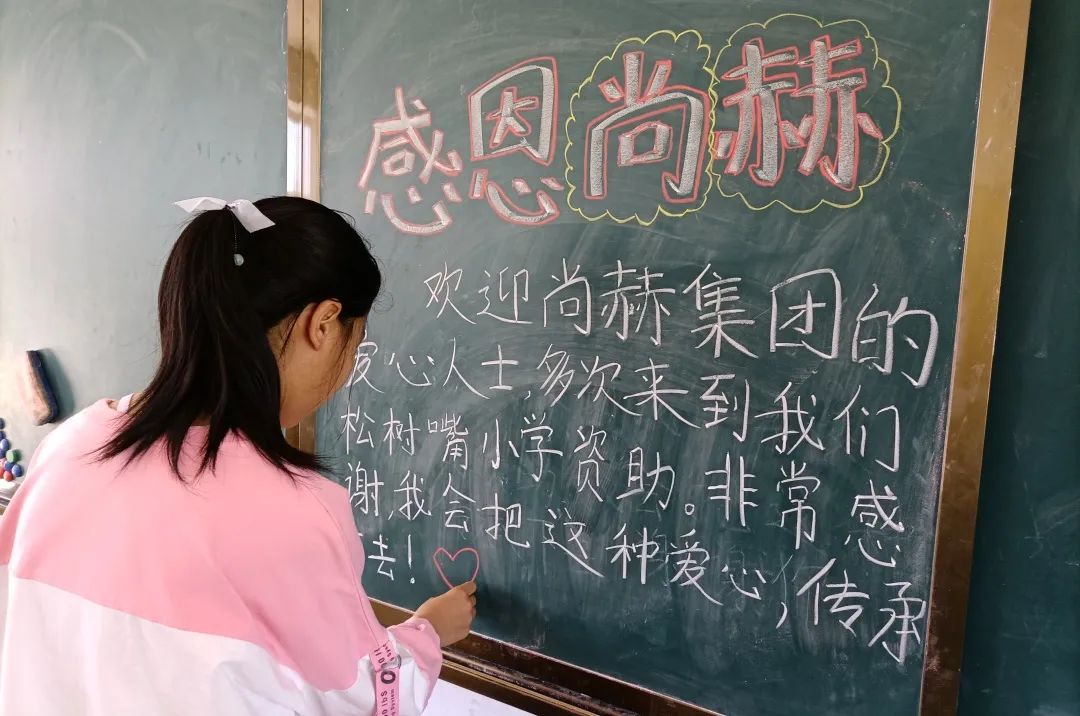 感恩尚赫
欢迎尚赫集团的
爱心人士,多次来到我们
松树嘴小学资助。非常感
谢,我会把这种爱心,传承
去!